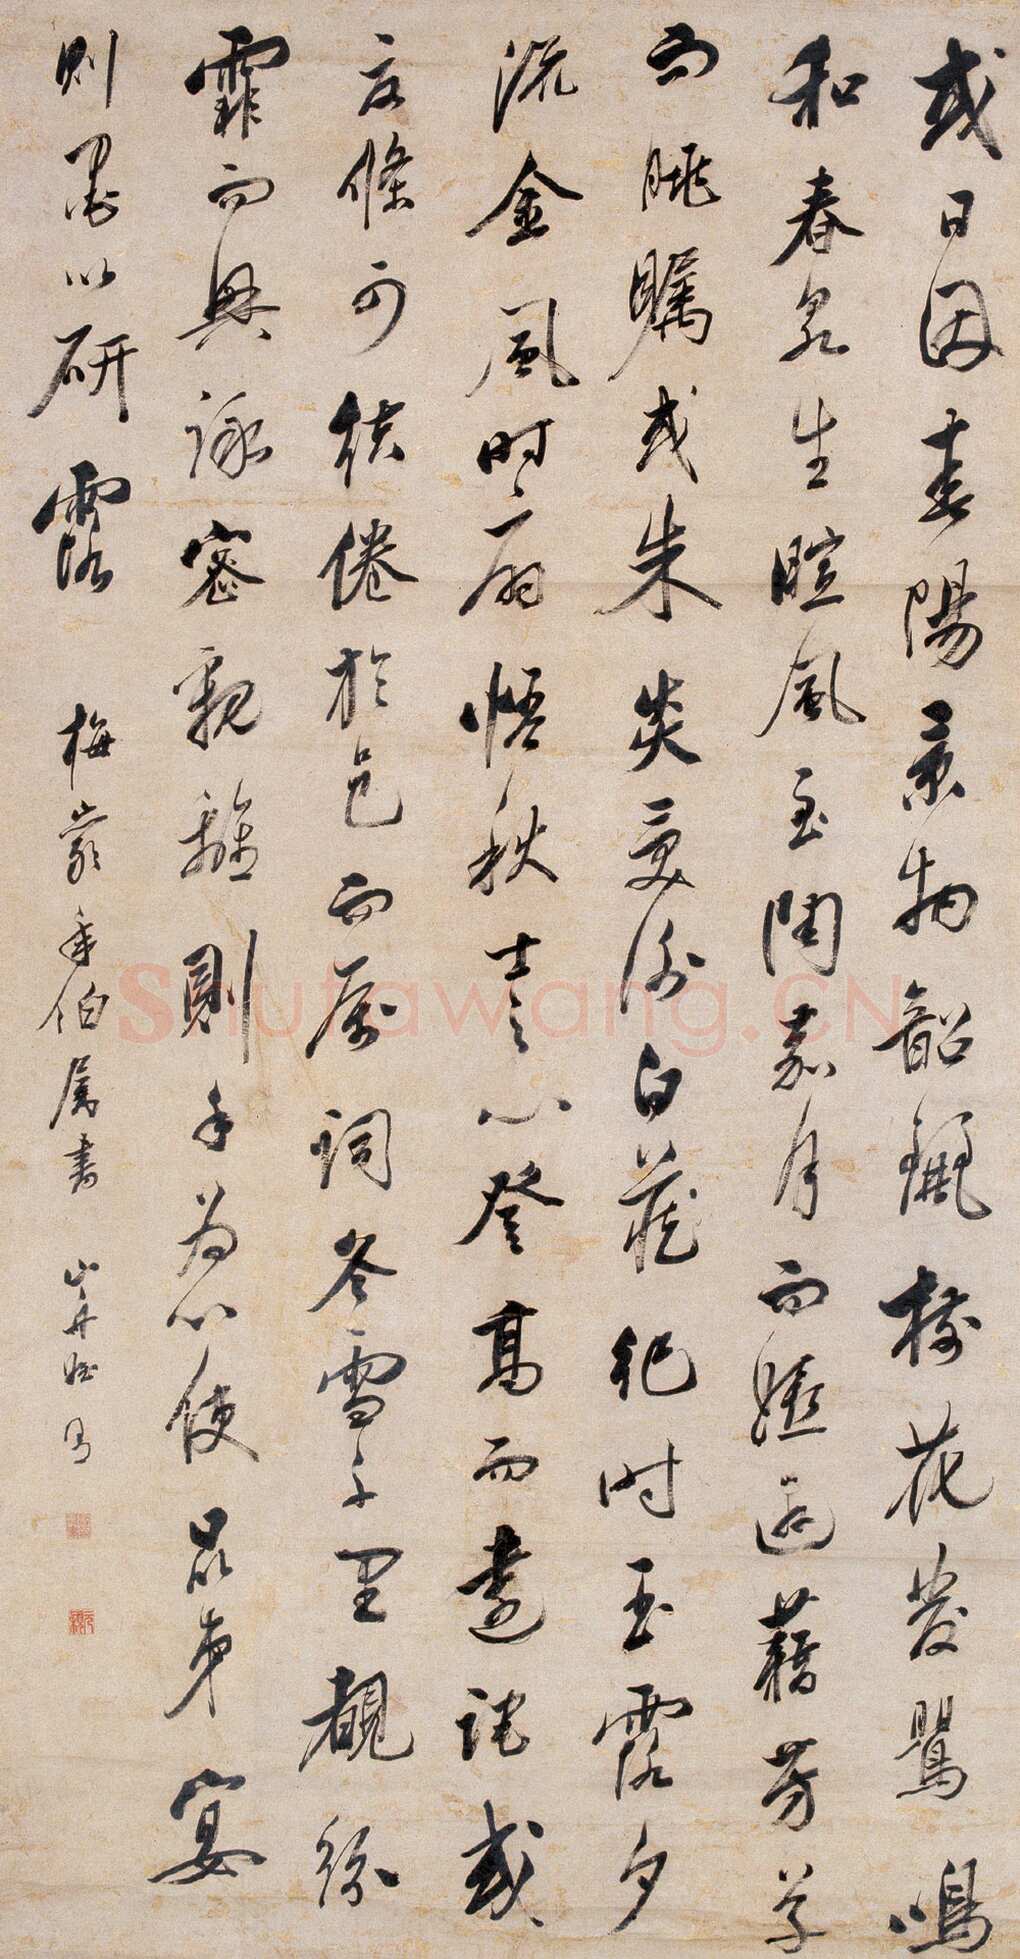 或日因春陽景物韶麗樹花發鶯鳴
和春泉生暄風至陶嘉月而嬉遊藉芳草
而眺矚或朱炎受謝白藏紀時玉露夕
流金風時扇悟秋士之心登高而遠託或
夏條可結倦於邑而属詞冬雪千里覩紛
霏而興詠密親離則手為心使昆弟宴
則墨以研露 梅巖年伯属書
Shufawang.CN